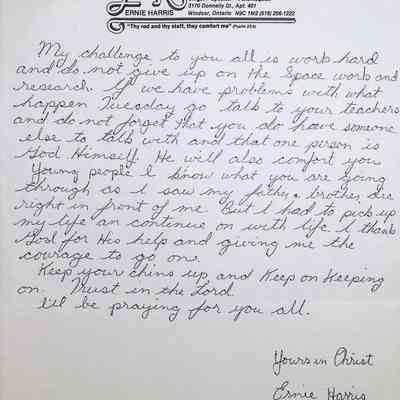 ERNIE HARRIS
3170 Donnelly St., Apt. 401
Windsor, Ontario N9C 1M2 (519) 256-1222
"Thy rod and thy staff, they comfort me" (Psalm 23:4)
My challenge to you all is work hard
and do not give up on the Space work and
research. If we have problems with what
happen Tuesday go talk to your teachers
and do not forget that you do have someone
else to talk with and that one person is
God Himself. He will also comfort you
Young people I know what you are going
through as I saw my father & brother die
right in front of me. But I had to pick up
my life an continue on with life. I thank
God for His help and giving me the
courage to go on.
Keep your chins up and Keep on Keeping
on. Trust in the Lord
I'll be praying for you all.
Yours in Christ
Ernie Harris